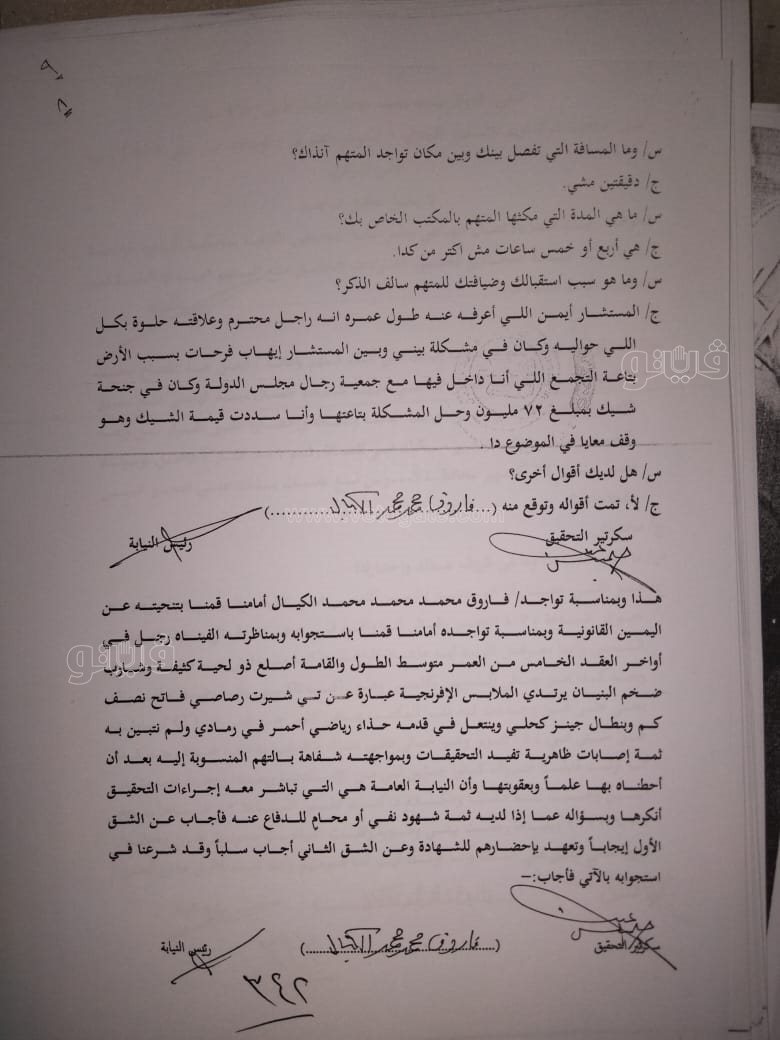 س/ وما المسافة التي تفصل بينك وبين مكان تواجد المتهم آنذاك؟
ج/ دقيقتين مشي.
س/ ما هي المدة التي مكثها المتهم بالمكتب الخاص بك؟
ج/ هي أربع أو خمس ساعات مش اكتر من كدا.
س/ وما هو سبب استقبالك وضيافتك للمتهم سالف الذكر؟
ج/ المستشار أيمن اللي أعرفه عنه طول عمره انه راجل محترم وعلاقته حلوة بكل
اللي حواليه وكان في مشكلة بيني وبين المستشار إيهاب فرحات بسبب الأرض
بتاعة التجمع اللي أنا داخل فيها مع جمعية رجال مجلس الدولة وكان في جنحة
شيك بمبلغ ٧٢ مليون وحل المشكلة بتاعتها وأنا سددت قيمة الشيك وهو
وقف معايا في الموضوع دا .
س/ هل لديك أقوال أخرى؟
ج/ لأ، تمت أقواله وتوقع منه (... فاروق محمد محمد الكيال ............)
سكرتير التحقيق رئيس النيابة
هذا وبمناسبة تواجد/ فاروق محمد محمد محمد الكيال أمامنا قمنا بتنحيته عن
اليمين القانونية وبمناسبة تواجده أمامنا قمنا باستجوابه وبمناظرته الفيناه رجل في
أواخر العقد الخامس من العمر متوسط الطول والقامة أصلع ذو لحية كثيفة وشارب
ضخم البنيان يرتدي الملابس الإفرنجية عبارة عن تي شيرت رصاصي فاتح نصف
كم وبنطال جينز كحلي وينتعل في قدمه حذاء رياضي أحمر في رمادي ولم نتبين به
ثمة إصابات ظاهرية تفيد التحقيقات وبمواجهته شفاهة بالتهم المنسوبة إليه بعد أن
أحطناه بها علماً وبعقوبتها وأن النيابة العامة هي التي تباشر معه إجراءات التحقيق
أنكرها وبسؤاله عما إذا لديه ثمة شهود نفي أو محامٍ للدفاع عنه فأجاب عن الشق
الأول إيجاباً وتعهد بإحضارهم للشهادة وعن الشق الثاني أجاب سلباً وقد شرعنا في
استجوابه بالآتي فأجاب:–
سكرتير التحقيق (... فاروق محمد محمد الكيال ............) رئيس النيابة
٣٤٢
ڤيتو
ڤيتو